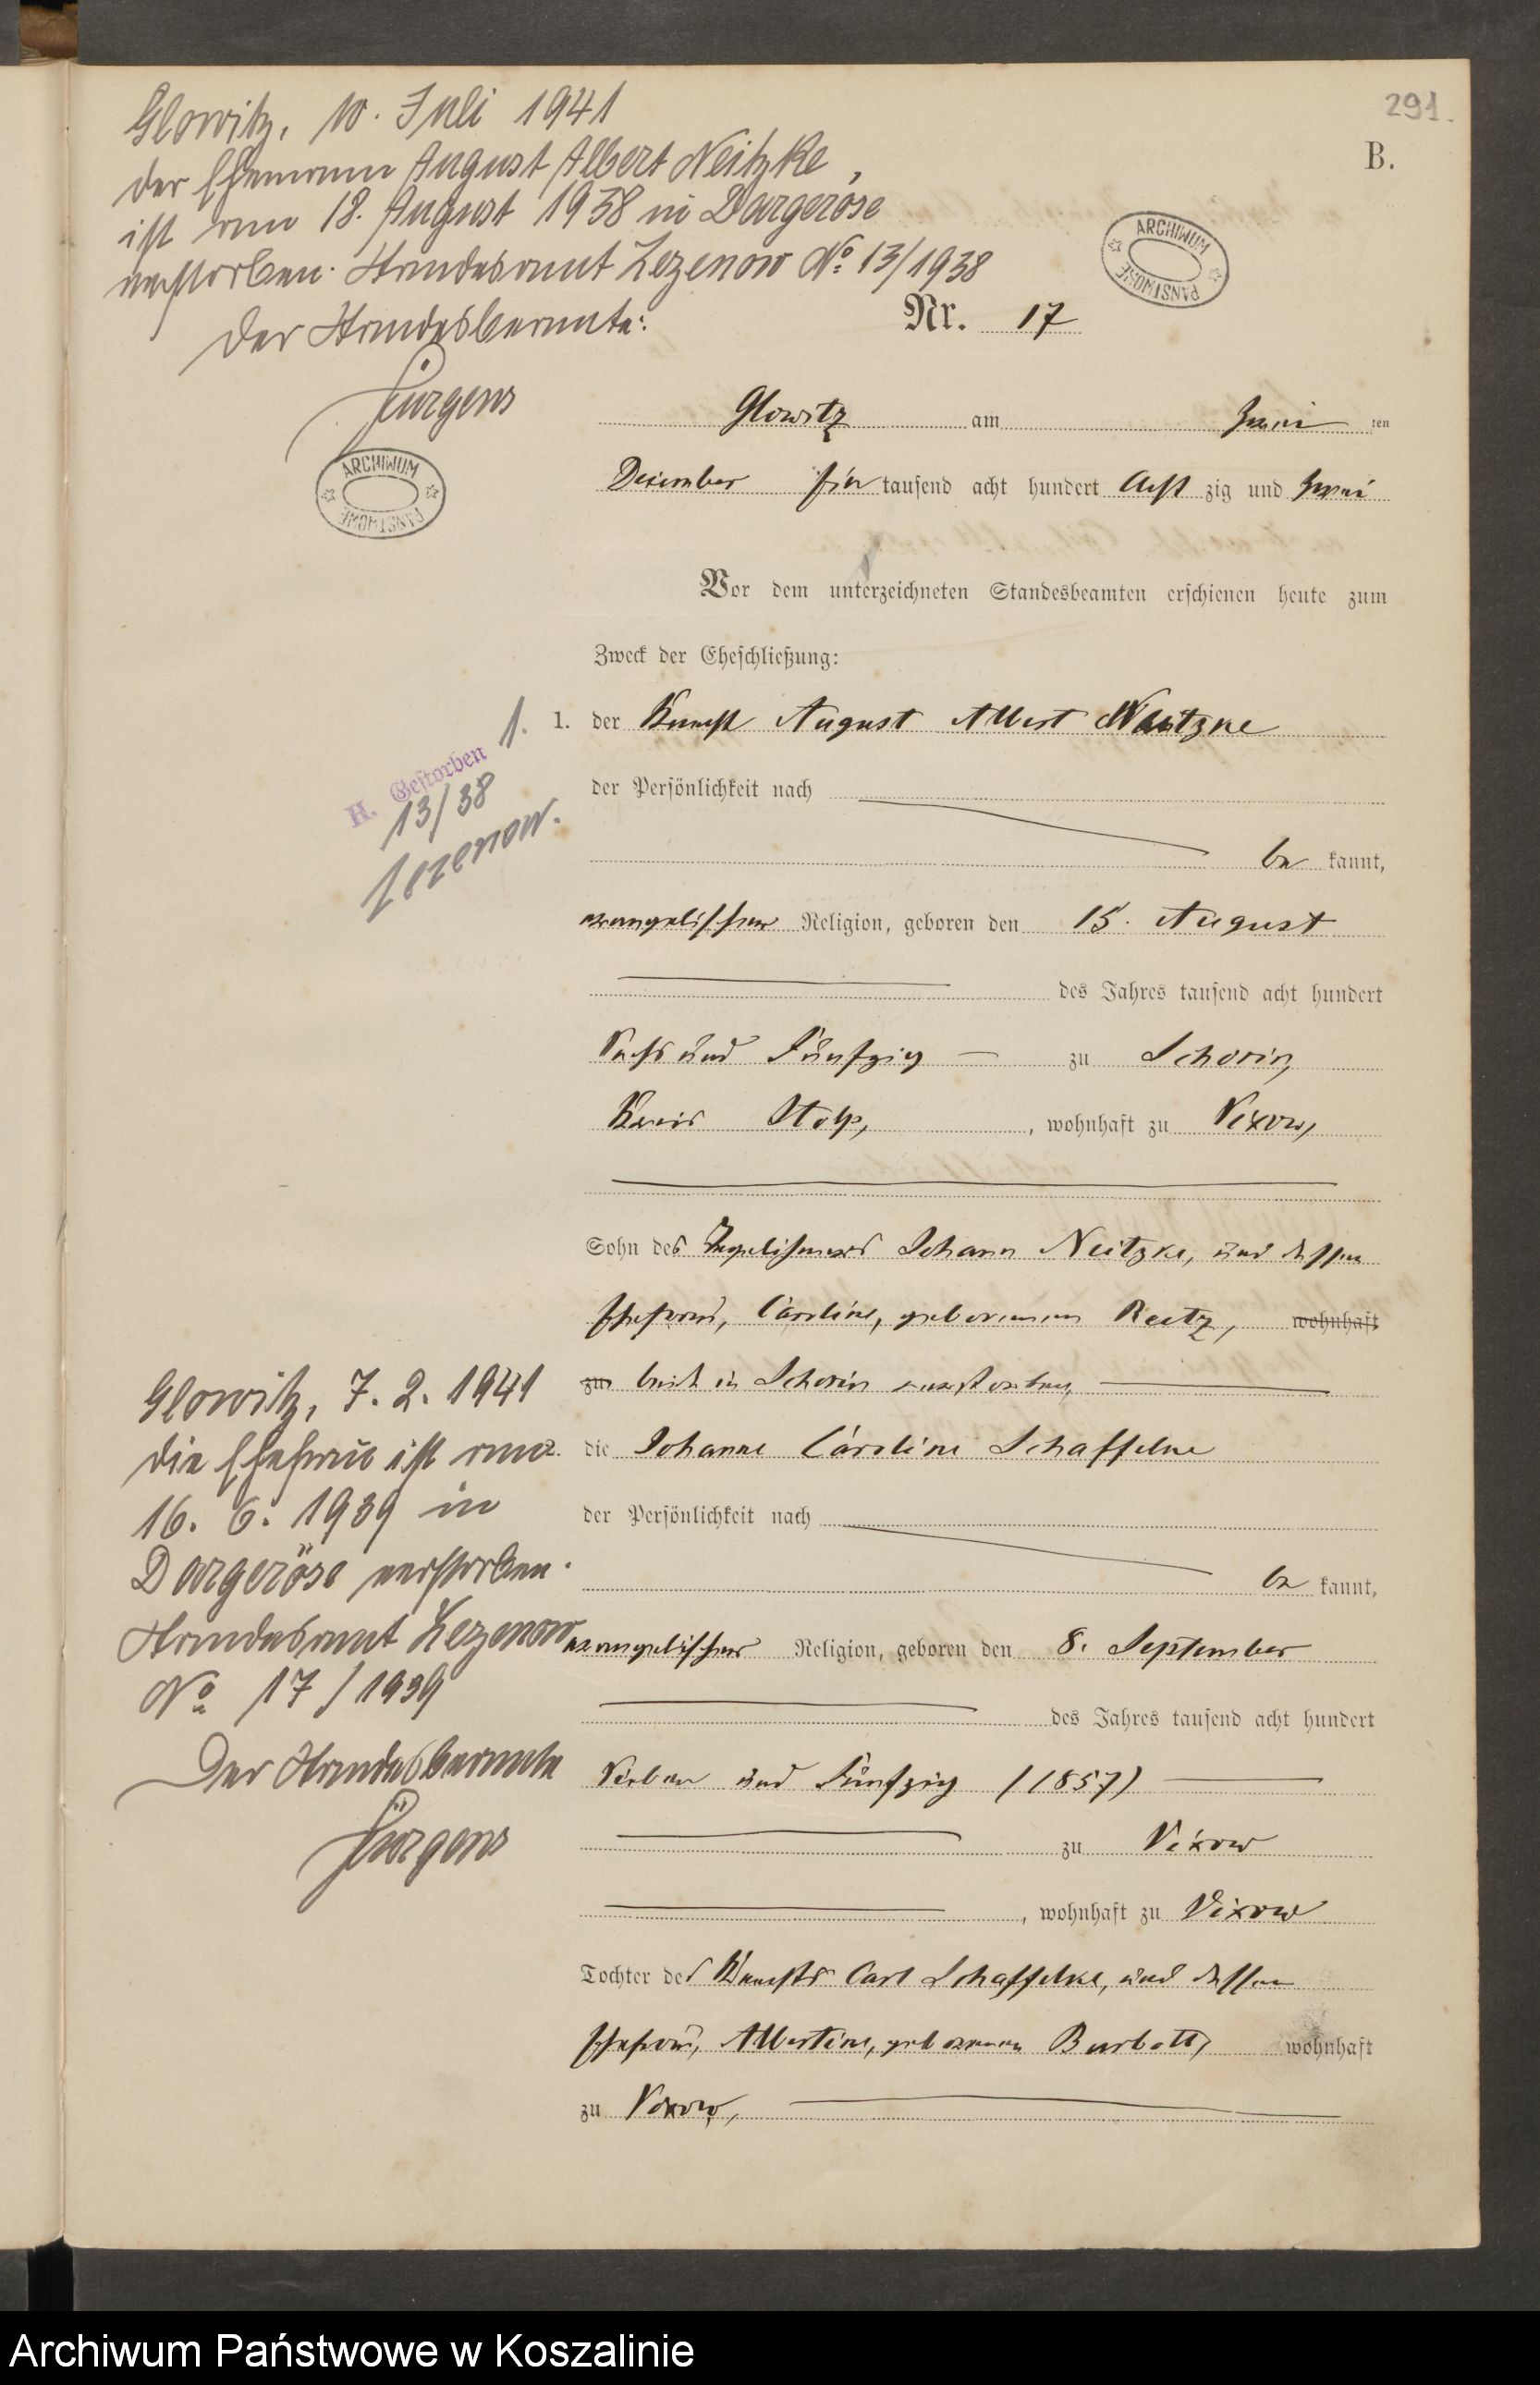 291.
B.
Glowitz, 10. Juli 1941
der Ehemann August Albert Neitzke,
ist am 18. August 1938 in Dargeröse
verstorben. Standesamt Zezenow No 13/1938
Der Standesbeamte:
Jürgens
ARCHIWUM PAŃSTWOWE
ARCHIWUM PAŃSTWOWE
Nr. 17
Glowitz am Zwei ten
Dezember Ein tausend acht hundert Acht zig und Zwei
Vor dem unterzeichneten Standesbeamten erschienen heute zum
Zweck der Eheschließung:
1. der Knecht August Albert Neitzke
der Persönlichkeit nach
be kannt,
H. Gestorben 1.
13/38
Zezenow.
evangelischer Religion, geboren den 15. August
des Jahres tausend acht hundert
Sechs und Fünfzig zu Schorin,
Kreis Stolp, , wohnhaft zu Vixow,
Sohn des Johann Neitzke, und dessen
Ehefrau, Caroline, geborenen Reetz, wohnhaft
zu beide in Schorin verstorben,
Glowitz, 7. 2. 1941
die Ehefrau ist am
16. 6. 1939 in
Dargeröse verstorben.
Standesamt Zezenow
No 17/1939
Der Standesbeamte
Jürgens
2. die Johanne Caroline Schaffelke
der Persönlichkeit nach
be kannt,
evangelischer Religion, geboren den 8. September
des Jahres tausend acht hundert
Sieben und Fünfzig (1857)
zu Vixow
, wohnhaft zu Vixow
Tochter des Knechts Carl Schaffelke, und dessen
Ehefrau, Albertine, geborenen wohnhaft
zu Vixow,
Archiwum Państwowe w Koszalinie